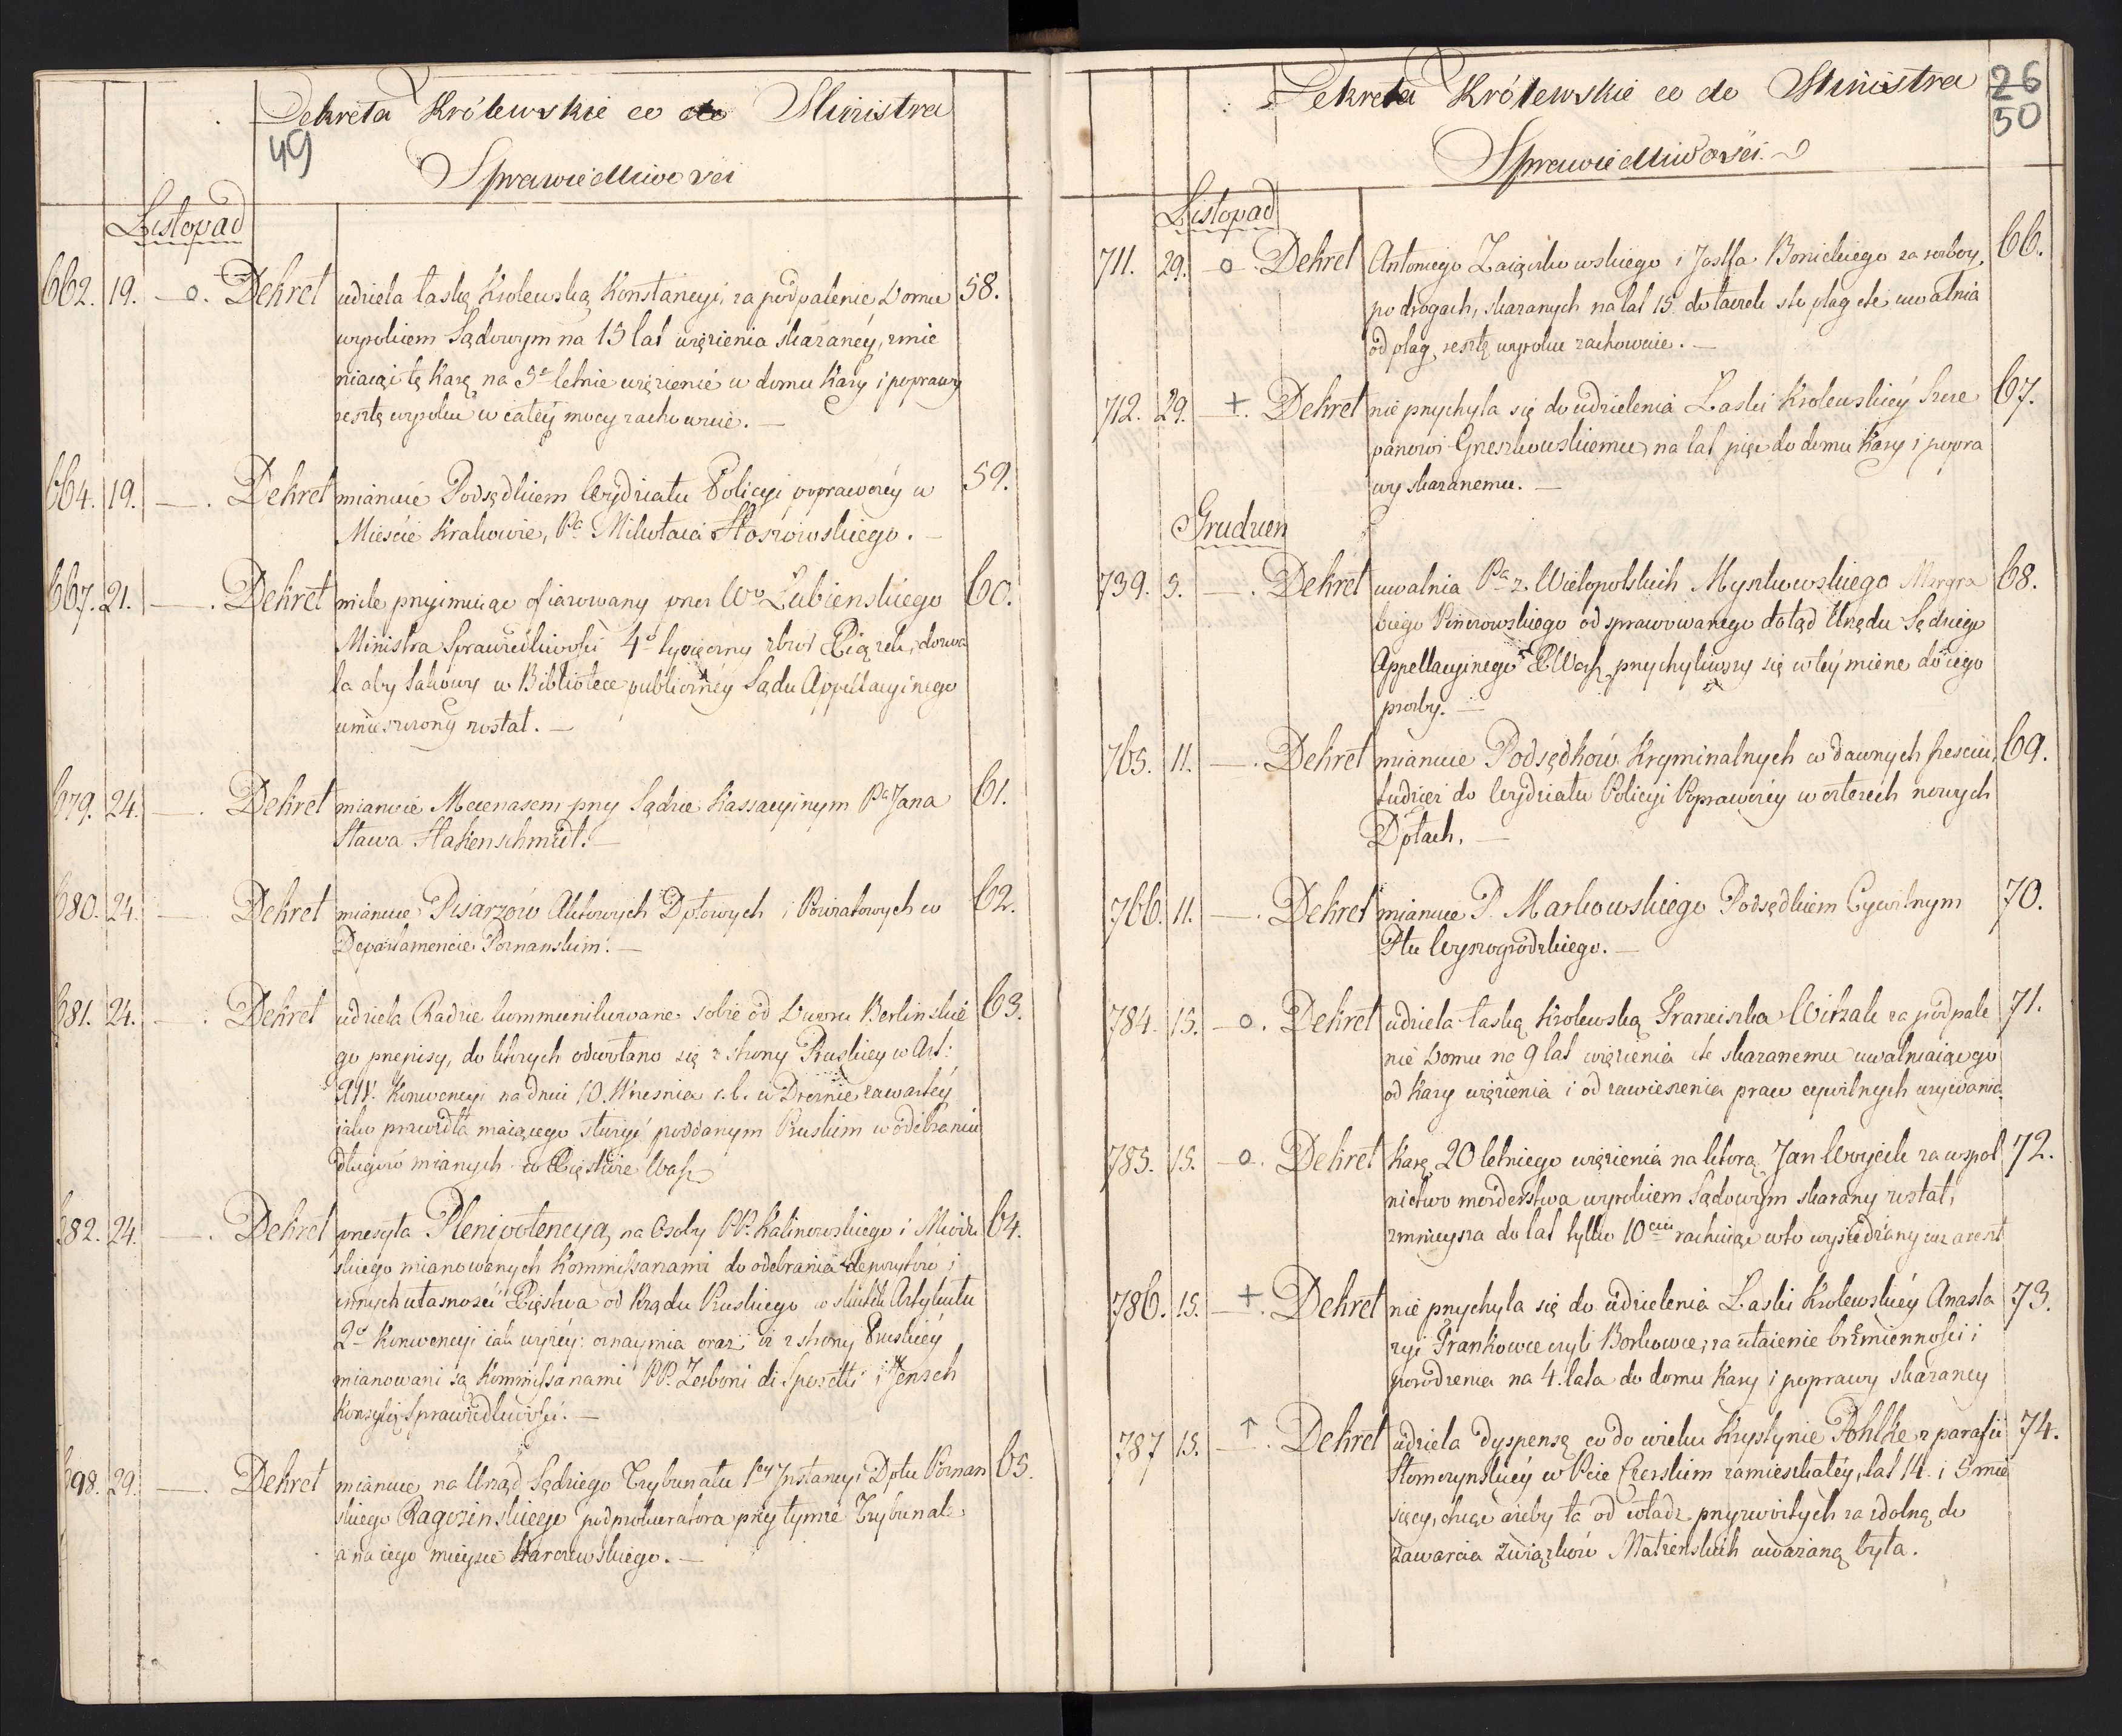 Dekreta Królewskie co do Ministra
49
Sprawiedliwości
Listopad
662. 19. —o. Dekret udziela łaskę Krolewską Konstancyi, za podpalenie Domu 58.
wyrokiem Sądowym na 15 lat więzienia skazanéy, zmie
niaiąc tę karę na 5o letnie więzienie w domu Kary i poprawy
resztę wyroku w całéy mocy zachowuie. —
664. 19. —. Dekret mianuie Podsędkiem Wydziału Policyi poprawczéy w 59.
Mieście Krakowie, Pa Mikołaia Hoszowskiego. —
667. 21. —. Dekret mile przyimuiąc ofiarowany przez Wo Łubienskiego 60.
Ministra Sprawiedliwości 4o tysięczny zbiór Xiążek, dozwa
la aby takowy w Bibliotece publicznéy Sądu Appellacyinego
umieszczony został. —
679. 24. —. Dekret mianuie Mecenasem przy Sądzie Kassacyinym Pa Jana 61.
Sława Hakenschmidt. —
680. 24. —. Dekret mianuie Pisarzów Aktowych Dptowych i Powiatowych w 62.
Departamencie Poznanskim. —
681. 24. —. Dekret udziela Radzie kommunikowane sobie od Dworu Berlinskie 63.
go przepisy, do których odwołano się z strony Pruskiey w Art:
XIV. Konwencyi na dniu 10. Wrzesnia r. b. w Dreznie zawartéy
iako prawidła maiącego służyć poddanym Pruskim w odebraniu
długów mianych w Xięstwie Wasz
682. 24. —. Dekret przesyła Plenipotencyą, na Osoby PP. Kalinowskiego i Miodu 64.
skiego mianowanych Kommissarzami do odebrania depozytów i
innych własności Xięstwa od Rządu Pruskiego w skutek Artykułu
2o Konwencyi iak wyżéy: oznaymia oraz iż z strony Pruskiéy
mianowani są Kommissarzami PP. Zerboni di Sposetti i Jensch
Konsyli: Sprawiedliwości. —
698. 29. —. Dekret mianuie na Urząd Sędziego Trybunału 1ey Instancyi Dptu Poznan 65.
skiego Ragozinskiego podprokuratora przy tymże Trybunale
a na iego mieysce Karczewskiego. —
Dekreta Królewskie co do Ministra 26
50
Sprawiedliwości.
Listopad
711. 29. —o. Dekret Antoniego Zaiączkowskiego i Józefa Bonieckiego za rozboy, 66.
po drogach, skazanych na lat 15 do taczek sto plag etc uwalnia
od plag, resztę wyroku zachowuie. —
712. 29. +. Dekret nie przychyla się do udzielenia Łaski Krolewskiéy Szcze 67.
panowi Greszkowskiemu, na lat pięć do domu Kary i popra
wy skazanemu. —
Grudzien
739. 5. —. Dekret uwalnia Pa z Wielopolskich Myszkowskiego Margra 68.
biego Pinczowskiego od sprawowanego dotąd Urzędu Sędziego
Appellacyinego XWasz, przychyliwszy się w téy mierze do iego
prozby. —
765. 11. —. Dekret mianuie Podsędków Kryminalnych w dawnych sześciu, 69.
tudzież do Wydziału Policyi Poprawczéy w czterech nowych
Dptach. —
766. 11. —. Dekret mianuie P. Markowskiego Podsędkiem Cywilnym 70.
Ptu Wyszogrodzkiego. —
784. 15. —o. Dekret udziela łaskę Krolewską Franciszka Witzak za podpale 71.
nie Domu na 9 lat więzienia etc skazanemu uwalniaiąc go
od Kary więzienia i od zawieszenia praw cywilnych używania.
785. 15. —o. Dekret Karę 20 letniego więzienia na którą Jan Woycik za wspol 72.
nictwo morderstwa wyrokiem Sądowym skazany został,
zmnieysza do lat tylko 10ciu rachuiąc w to wysiedziany iuż areszt
786. 15. +. Dekret nie przychyla się do udzielenia Łaski Krolewskiéy Anasta 73.
zyi Frankowce czyli Borkowce, za utaienie brzemienności i
porodzenia na 4. lata do domu Kary i poprawy skazaney
787 15. ↑. Dekret udziela dyspensę co do wieku Krystynie Pohlke z parafii 74.
Słomczynskiéy w Pcie Czerskim zamieszkałéy, lat 14. i 5 mie
sięcy, chcąc ażeby ta od władz przyzwoitych za zdolną do
zawarcia związków Małżenskich uważaną była.